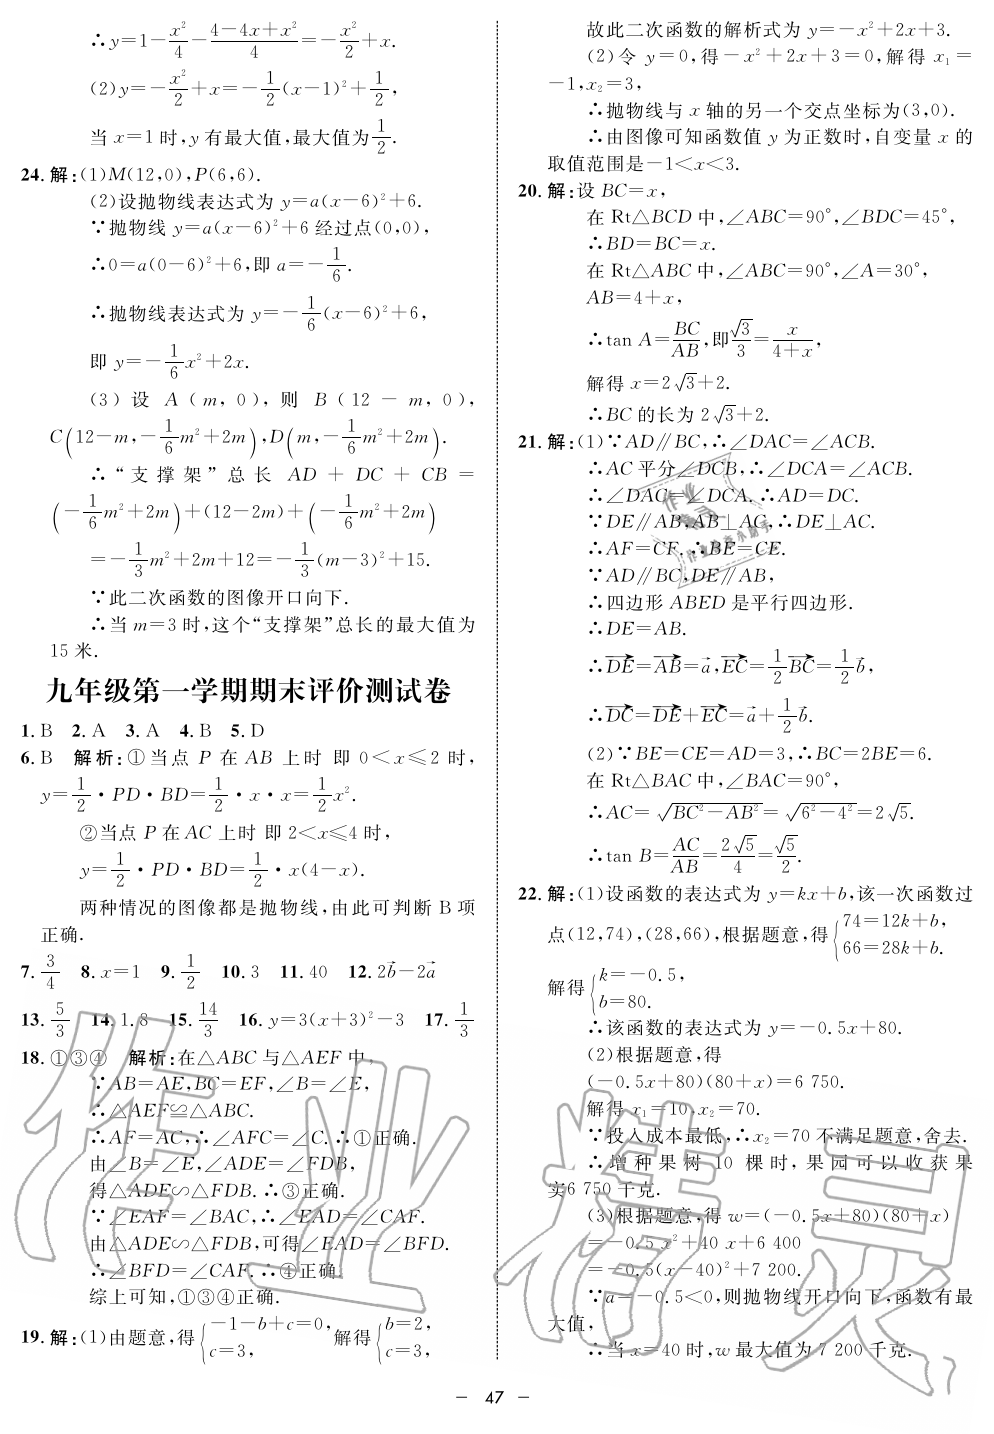 ∴y=1-x²/4-(4-4x+x²)/4=-x²/2+x.
(2)y=-x²/2+x=-1/2(x-1)²+1/2,
当x=1时,y有最大值,最大值为1/2.
24.解:(1)M(12,0),P(6,6).
(2)设抛物线表达式为y=a(x-6)²+6.
∵抛物线y=a(x-6)²+6经过点(0,0),
∴0=a(0-6)²+6,即a=-1/6.
∴抛物线表达式为y=-1/6(x-6)²+6,
即y=-1/6x²+2x.
(3)设A(m,0),则B(12-m,0),
C(12-m,-1/6m²+2m),D(m,-1/6m²+2m).
∴“支撑架”总长AD+DC+CB=
(-1/6m²+2m)+(12-2m)+(-1/6m²+2m)
=-1/3m²+2m+12=-1/3(m-3)²+15.
∵此二次函数的图像开口向下.
∴当m=3时,这个“支撑架”总长的最大值为
15米.
九年级第一学期期末评价测试卷
1.B 2.A 3.A 4.B 5.D
6.B 解析:①当点P在AB上时 即0<x≤2时,
y=1/2·PD·BD=1/2·x·x=1/2x².
②当点P在AC上时 即2<x≤4时,
y=1/2·PD·BD=1/2·x(4-x).
两种情况的图像都是抛物线,由此可判断B项
正确.
7.3/4 8.x=1 9.1/2 10.3 11.40 12.2b⃗-2a⃗
13.5/3 14.1.8 15.14/3 16.y=3(x+3)²-3 17.1/3
18.①③④ 解析:在△ABC与△AEF中,
∵AB=AE,BC=EF,∠B=∠E,
∴△AEF≌△ABC.
∴AF=AC,∴∠AFC=∠C.∴①正确.
由∠B=∠E,∠ADE=∠FDB,
得△ADE∽△FDB.∴③正确.
∵∠EAF=∠BAC,∴∠EAD=∠CAF.
由△ADE∽△FDB,可得∠EAD=∠BFD.
∴∠BFD=∠CAF.∴④正确.
综上可知,①③④正确.
19.解:(1)由题意,得{-1-b+c=0, c=3, 解得{b=2, c=3,
故此二次函数的解析式为y=-x²+2x+3.
(2)令y=0,得-x²+2x+3=0,解得x₁=
-1,x₂=3,
∴抛物线与x轴的另一个交点坐标为(3,0).
∴由图像可知函数值y为正数时,自变量x的
取值范围是-1<x<3.
20.解:设BC=x,
在Rt△BCD中,∠ABC=90°,∠BDC=45°,
∴BD=BC=x.
在Rt△ABC中,∠ABC=90°,∠A=30°,
AB=4+x,
∴tan A=BC/AB,即√3/3=x/(4+x),
解得x=2√3+2.
∴BC的长为2√3+2.
21.解:(1)∵AD∥BC,∴∠DAC=∠ACB.
∴AC平分∠DCB,∴∠DCA=∠ACB.
∴∠DAC=∠DCA.∴AD=DC.
∵DE∥AB,AB⊥AC,∴DE⊥AC.
∴AF=CF.∴BE=CE.
∵AD∥BC,DE∥AB,
∴四边形ABED是平行四边形.
∴DE=AB.
∴DE⃗=AB⃗=a⃗,EC⃗=1/2BC⃗=1/2b⃗,
∴DC⃗=DE⃗+EC⃗=a⃗+1/2b⃗.
(2)∵BE=CE=AD=3,∴BC=2BE=6.
在Rt△BAC中,∠BAC=90°,
∴AC=√(BC²-AB²)=√(6²-4²)=2√5.
∴tan B=AC/AB=2√5/4=√5/2.
22.解:(1)设函数的表达式为y=kx+b,该一次函数过
点(12,74),(28,66),根据题意,得{74=12k+b, 66=28k+b.
解得{k=-0.5, b=80.
∴该函数的表达式为y=-0.5x+80.
(2)根据题意,得
(-0.5x+80)(80+x)=6 750.
解得x₁=10,x₂=70.
∵投入成本最低,∴x₂=70不满足题意,舍去.
∴增种果树10棵时,果园可以收获果
实6 750千克.
(3)根据题意,得w=(-0.5x+80)(80+x)
=-0.5x²+40x+6 400
=-0.5(x-40)²+7 200.
∵a=-0.5<0,则抛物线开口向下,函数有最
大值,
∴当x=40时,w最大值为7 200千克.
- 47 -
作业精灵